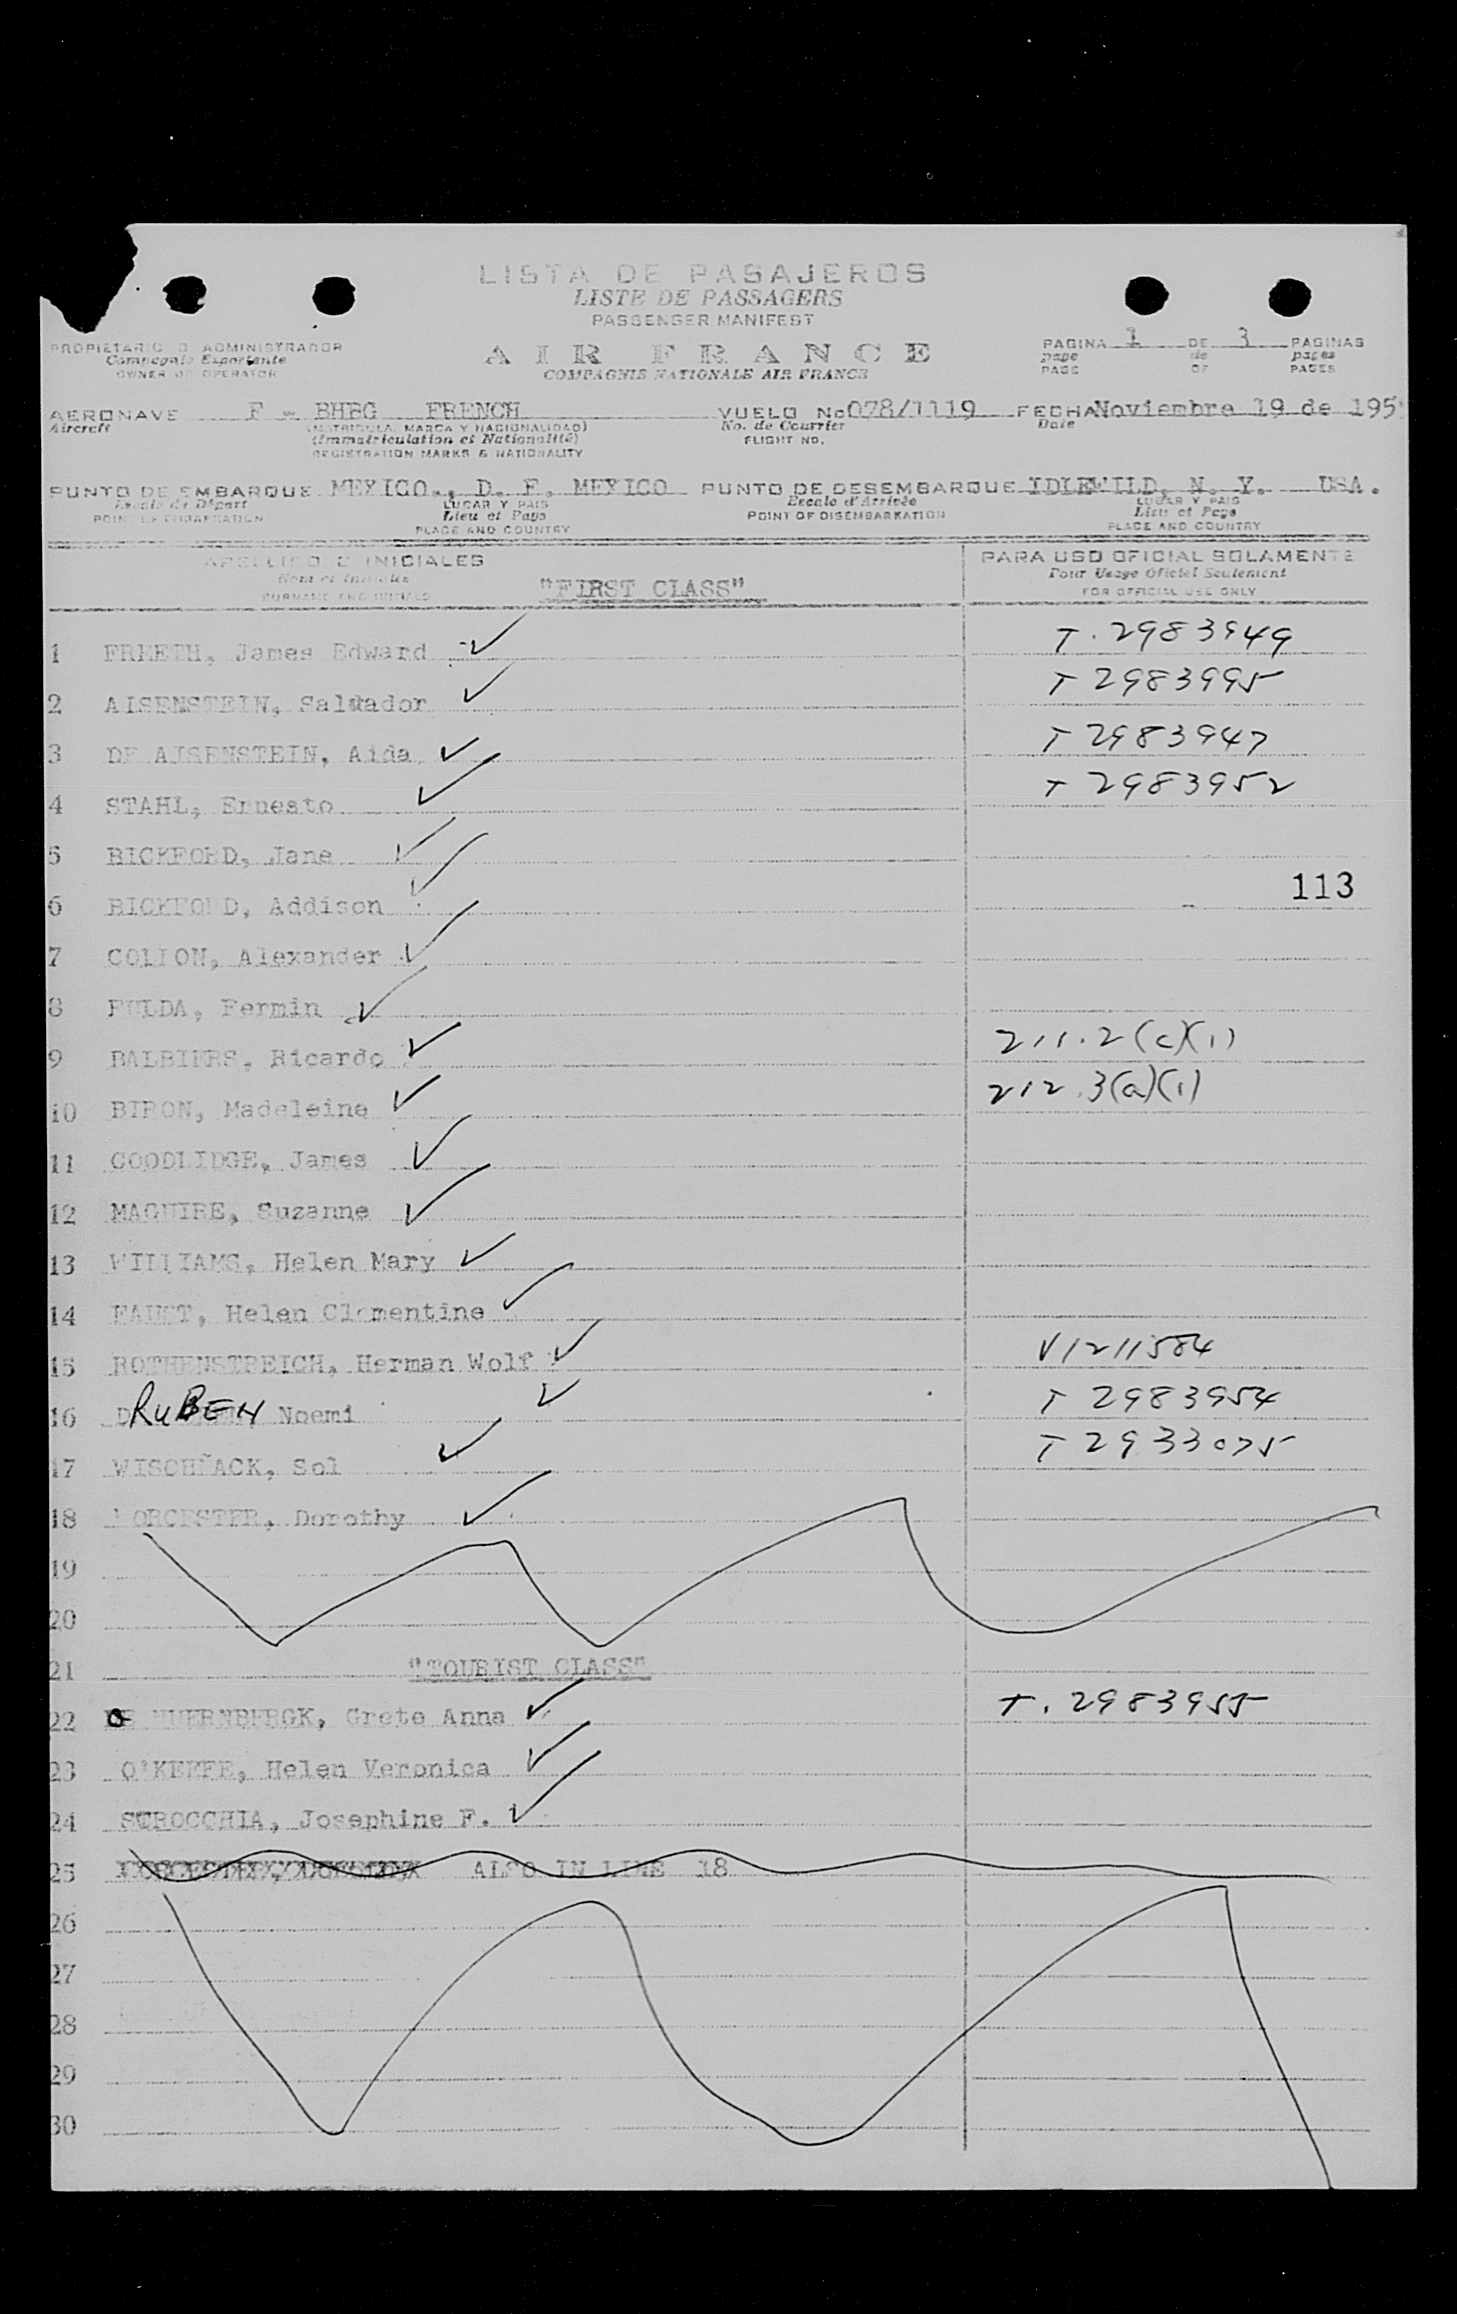 LISTA DE PASAJEROS
LISTE DE PASSAGERS
PASSENGER MANIFEST
PROPIETARIO O ADMINISTRADOR
Compagnie Exportante
OWNER OR OPERATOR
AIR FRANCE
COMPAGNIE NATIONALE AIR FRANCE
PAGINA 1 DE 3 PAGINAS
page de pages
PAGE OF PAGES
AERONAVE F - BHBG FRENCH VUELO No 078/1119 FECHA Noviembre 19 de 195
Aircraft (MATRICULA, MARCA Y NACIONALIDAD) No. de Courrier Date
(Immatriculation et Nationalité) FLIGHT NO.
REGISTRATION MARKS & NATIONALITY
PUNTO DE EMBARQUE MEXICO., D. F. MEXICO PUNTO DE DESEMBARQUE IDLEWILD, N. Y. USA.
Escale de Départ LUGAR Y PAIS Escale d'Arrivée LUGAR Y PAIS
POINT OF EMBARKATION Lieu et Pays POINT OF DISEMBARKATION Lieu et Pays
PLACE AND COUNTRY PLACE AND COUNTRY
APELLIDO E INICIALES PARA USO OFICIAL SOLAMENTE
Nom et Initiales "FIRST CLASS" Pour Usage Oficiel Seulement
SURNAME AND INITIALS FOR OFFICIAL USE ONLY
1 FREETH, James Edward T. 2983949
2 AISENSTEIN, Salvador T 2983995
3 DE AISENSTEIN, Aida T 2983947
4 STAHL, Ernesto T 2983952
5 BICKFORD, Jane
6 BICKFORD, Addison 113
7 COLLON, Alexander
8 FULDA, Fermin
9 BALBIERS, Ricardo 211.2(c)(1)
10 BIRON, Madeleine 212.3(a)(1)
11 GOODLIDGE, James
12 MAGUIRE, Suzanne
13 WILLIAMS, Helen Mary
14 FAUST, Helen Clementine
15 ROTHENSTREICH, Herman Wolf V1211584
16 D RUBEN Noemi T 2983954
17 WISCHÑACK, Sol T 2933075
18 WORCESTER, Dorothy
19
20
21 "TOURIST CLASS"
22 DE NUERNBERGK, Grete Anna T. 2983955
23 O'KEEFE, Helen Veronica
24 STROCCHIA, Josephine F.
25 ALSO IN LINE 18
26
27
28
29
30